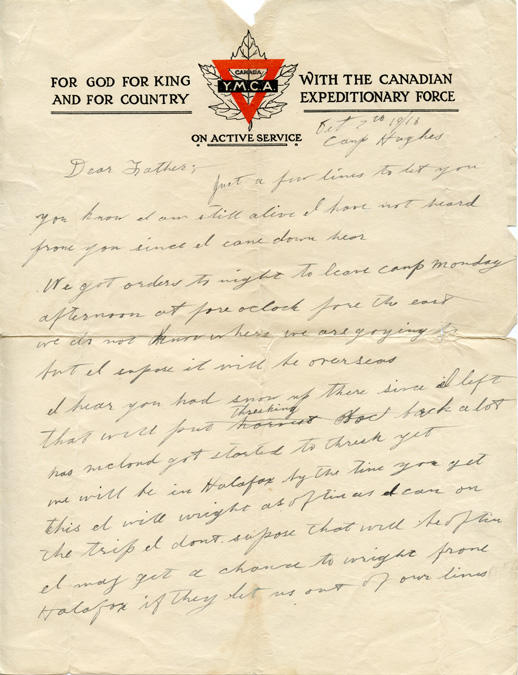 FOR GOD FOR KING
AND FOR COUNTRY
CANADA
Y.M.C.A.
WITH THE CANADIAN
EXPEDITIONARY FORCE
ON ACTIVE SERVICE
Oct 7th 1916
Camp Hughes
Dear Father;
Just a few lines to let you
you know I am still alive I have not heard
frome you since I came down hear
We got orders to night to leave camp monday
afternoon at fore oclock fore the east
we do not know where we are goying to
but I supose it will be overseas
I hear you had snow up there since I left
that will put harvest threshing back alot
has mcloud got started to thresh yet
we will be in Halafox by the time you get
this I will wright as oftin as I can on
the trip I dont supose that will be oftin
I may get a chance to wright frome
Halafox if they let us out of our lines